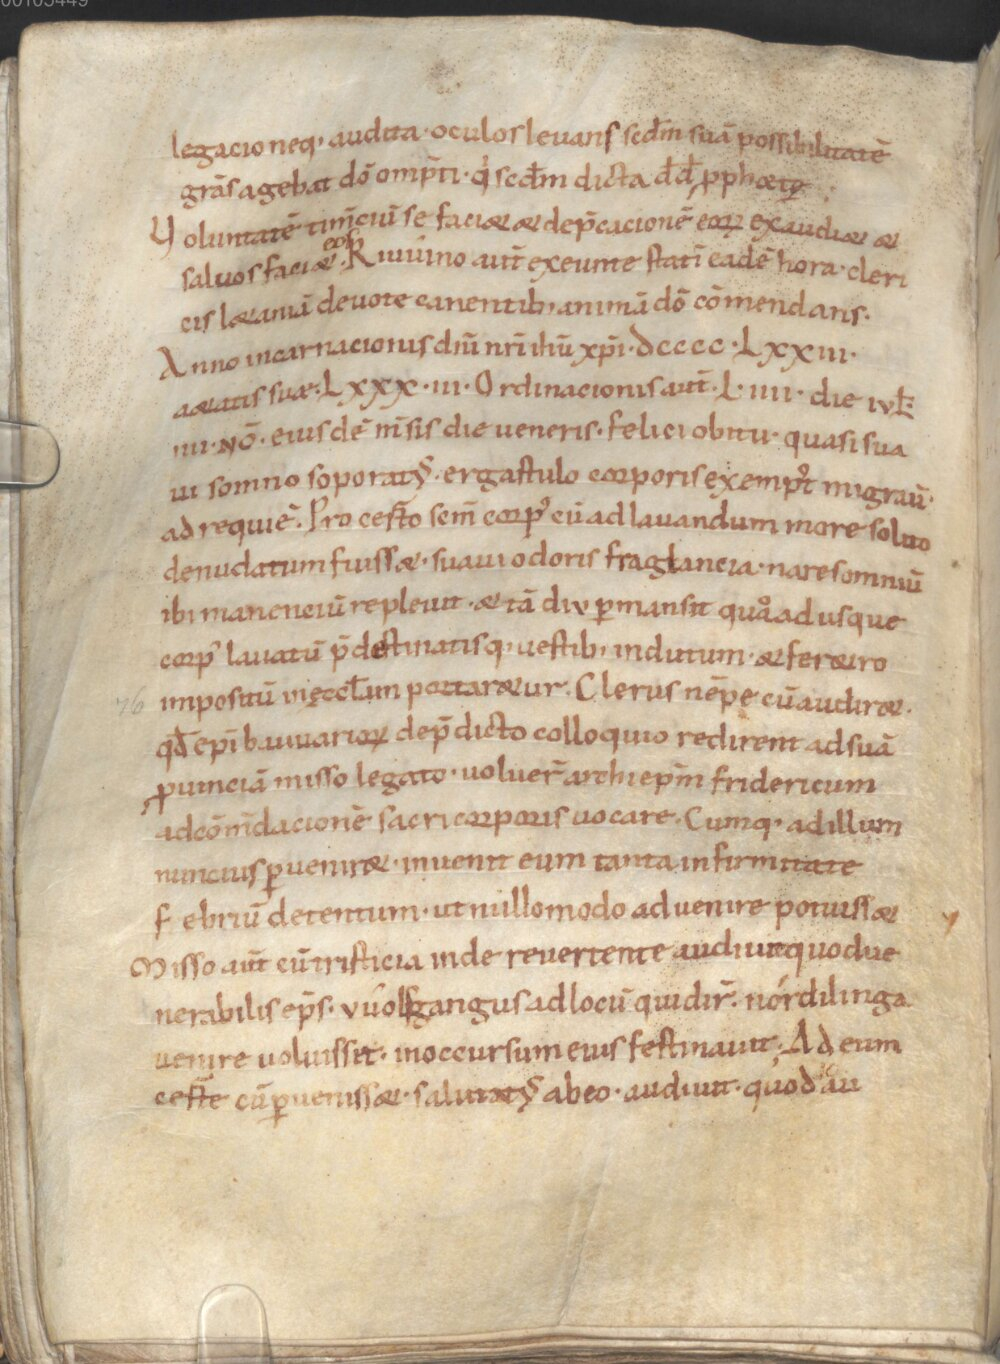 00105449
legacioneq· audita· oculos levans scdm̄ suā possibilitatē
grās agebat dō omp̄ti· q̇ scdm̄ dicta dd̄ ꝓphetę
Voluntatē tim̄ciū se faciet et dep̄cacionē eoꝝ exaudiet et
salvos faciet eos. Riuuino aut̄ exeunte statī eadē hora· cleri
cis letaniā devote canentib; animā dō cōmendans.
Anno incarnacionis dn̄i nr̄i ih̄u xp̄i· DCCCC· LXXIII·
aetatis suae· LXXX· III· Ordinacionis aut̄· L· IIII· die IVL̄
IIII· NŌ· eius dē m̄sis die veneris· felici obitu· quasi sua
ui somno soporatꝰ· ergastulo corporis exemptꝰ migrav̄·
ad requiē. Pro certo sem̄ corpꝰ eiꝰ ad lavandum more solito
denudatum fuisset· suavi odoris fraglancia· nares omniū
ibi manenciū replevit· et tā div ꝑmansit quo ad usque
corpꝰ lavatū p̄destinatisq· vestib; indutum· et feretro
impositū in ęccl̄iam portaretur. Clerus nēpe cū audiret·
76
qd̄ ep̄i bauuarioꝝ de p̄dicto colloquio redirent ad suā
ꝓvinciā misso legato· voluer̄ archiep̄m fridericum
ad cōm̄dacionē sacri corporis vocare. Cumq· ad illum
nuncius ꝑveniret· invenit eum tanta infirmitate
febriū detentum· ut nullomodo advenire potuisset
Misso aut̄ cū tristicia inde revertente audivit quod ve
nerabilis ep̄s· vuolfgangus ad locū qui dir̄· nórdilinga
venire voluisset· in occursum eius festinavit· Ad eum
certe cū ꝑvenisset· salutatꝰ ab eo· audivit· quod au